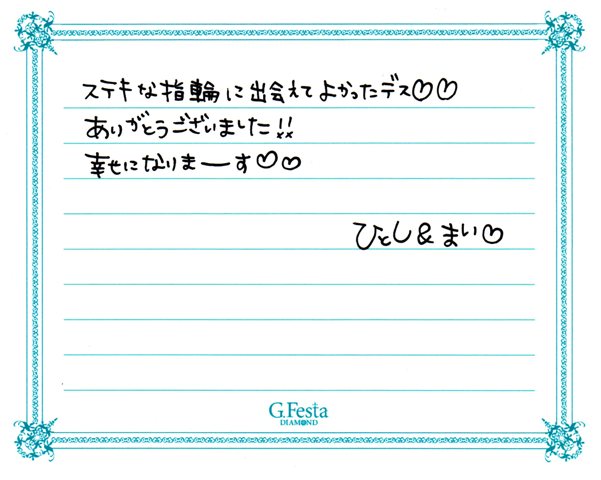 ステキな指輪に出会えてよかったデス♡♡
ありがとうございました!!
幸せになりまーす♡♡
ひとし&まい♡
G.Festa
DIAMOND